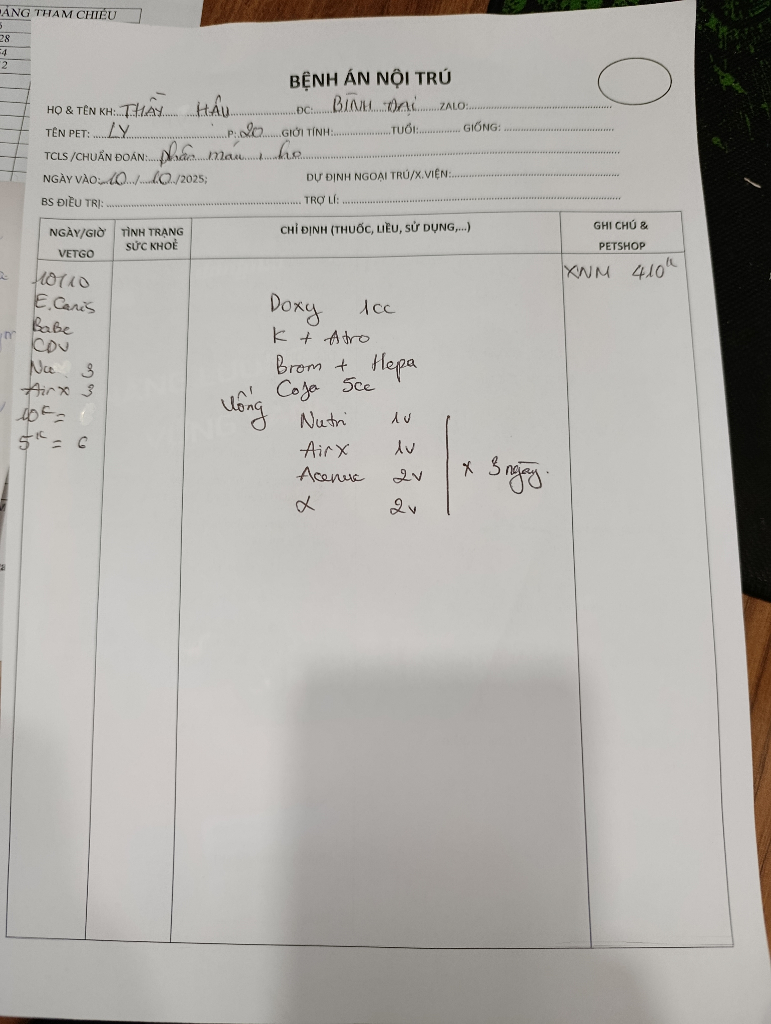 ẢNG THAM CHIẾU
28
2
BỆNH ÁN NỘI TRÚ
HỌ & TÊN KH: THẦY HẬU ĐC: BÌNH ĐẠI ZALO:
TÊN PET: LY P: 20 GIỚI TÍNH: TUỔI: GIỐNG:
TCLS /CHUẨN ĐOÁN: phân máu, ho
NGÀY VÀO: 10/10/2025; DỰ ĐỊNH NGOẠI TRÚ/X.VIỆN:
BS ĐIỀU TRỊ: TRỢ LÍ:
NGÀY/GIỜ VETGO
TÌNH TRẠNG SỨC KHOẺ
CHỈ ĐỊNH (THUỐC, LIỀU, SỬ DỤNG,...)
GHI CHÚ & PETSHOP
10/10 XNM 410k
E.Canis Doxy 1cc
Babe K + Atro
CDV Brom + Hepa
Nu 3 Coja 5cc
Air x 3 Uống Nutri 1v
10k = AirX 1v
5k = 6 Acenuc 2v x 3 ngày.
α 2v